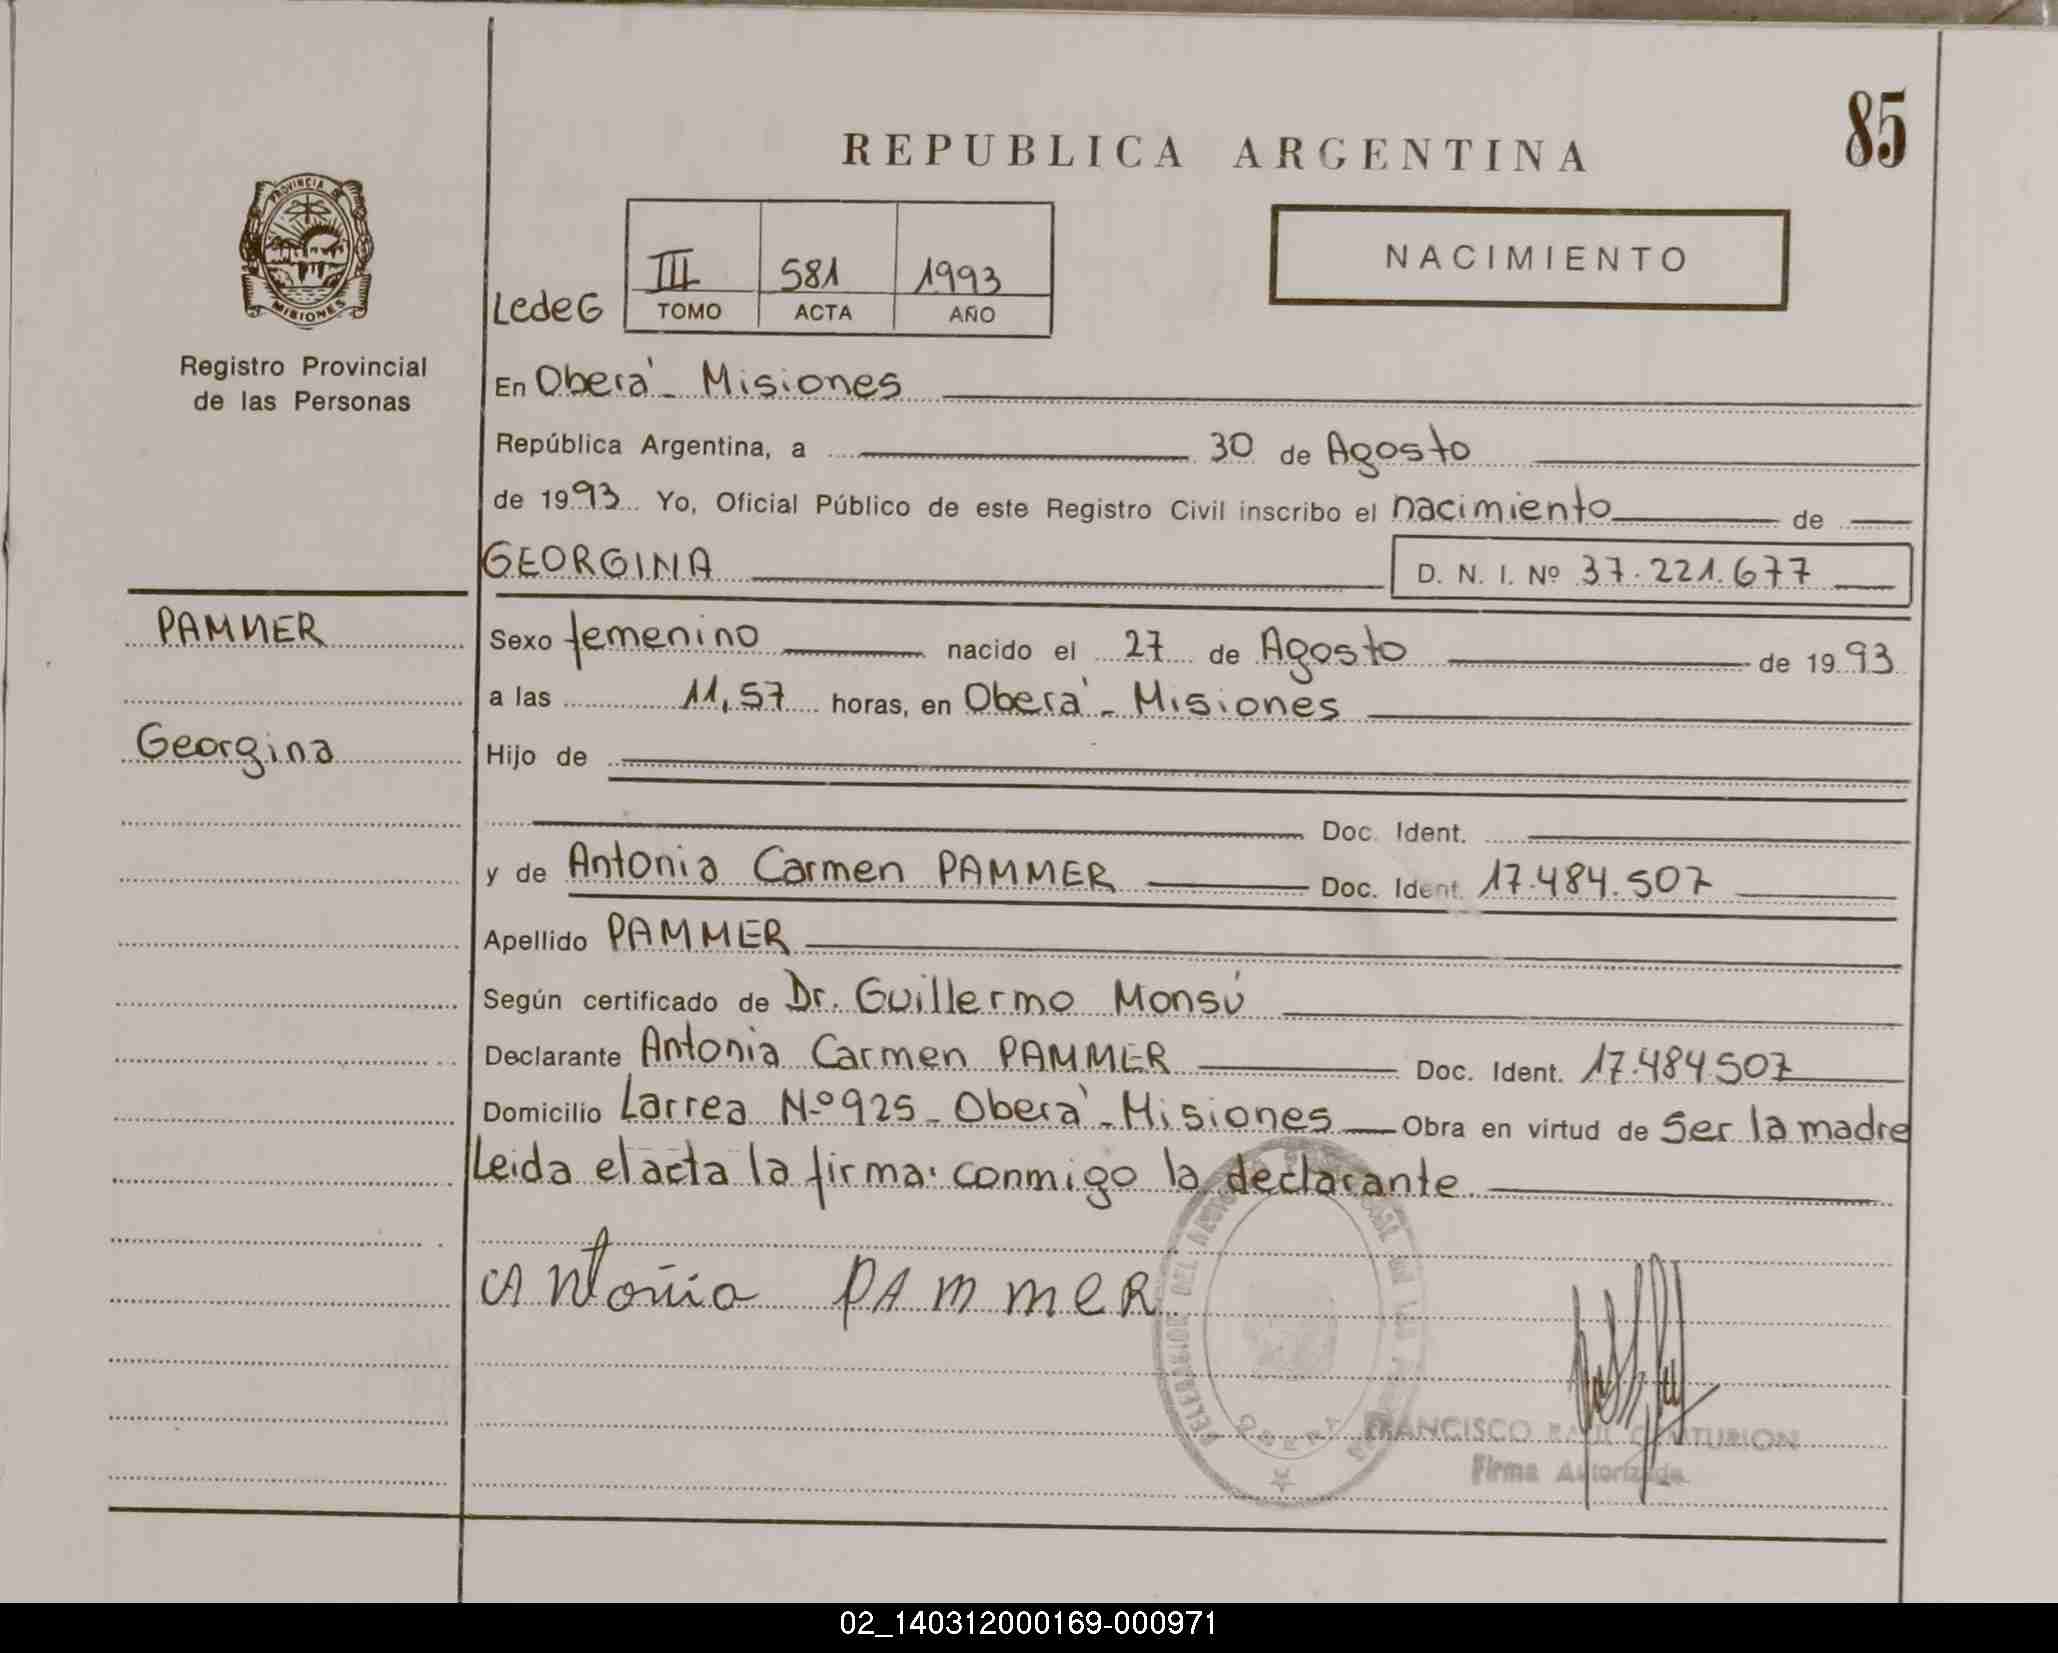 85
REPUBLICA ARGENTINA
PROVINCIA DE
MISIONES
NACIMIENTO
III 581 1993
LedeG TOMO ACTA AÑO
Registro Provincial
de las Personas
En Oberá - Misiones
República Argentina, a 30 de Agosto
de 1993 Yo, Oficial Público de este Registro Civil inscribo el nacimiento de
GEORGINA D. N. I. Nº 37.221.677
PAMMER
Sexo femenino nacido el 27 de Agosto de 1993
a las 11,57 horas, en Oberá - Misiones
Georgina
Hijo de
Doc. Ident.
y de Antonia Carmen PAMMER Doc. Ident. 17.484.507
Apellido PAMMER
Según certificado de Dr. Guillermo Monsú
Declarante Antonia Carmen PAMMER Doc. Ident. 17.484507
Domicilio Larrea N.º 925 - Oberá - Misiones Obra en virtud de Ser la madre
Leida el acta la firma: conmigo la declarante
Antonia PAMMER
DELEGACION DEL REGISTRO PROVINCIAL DE LAS PERSONAS
OBERA
FRANCISCO RAUL CENTURION
Firma Autorizada
02_140312000169-000971